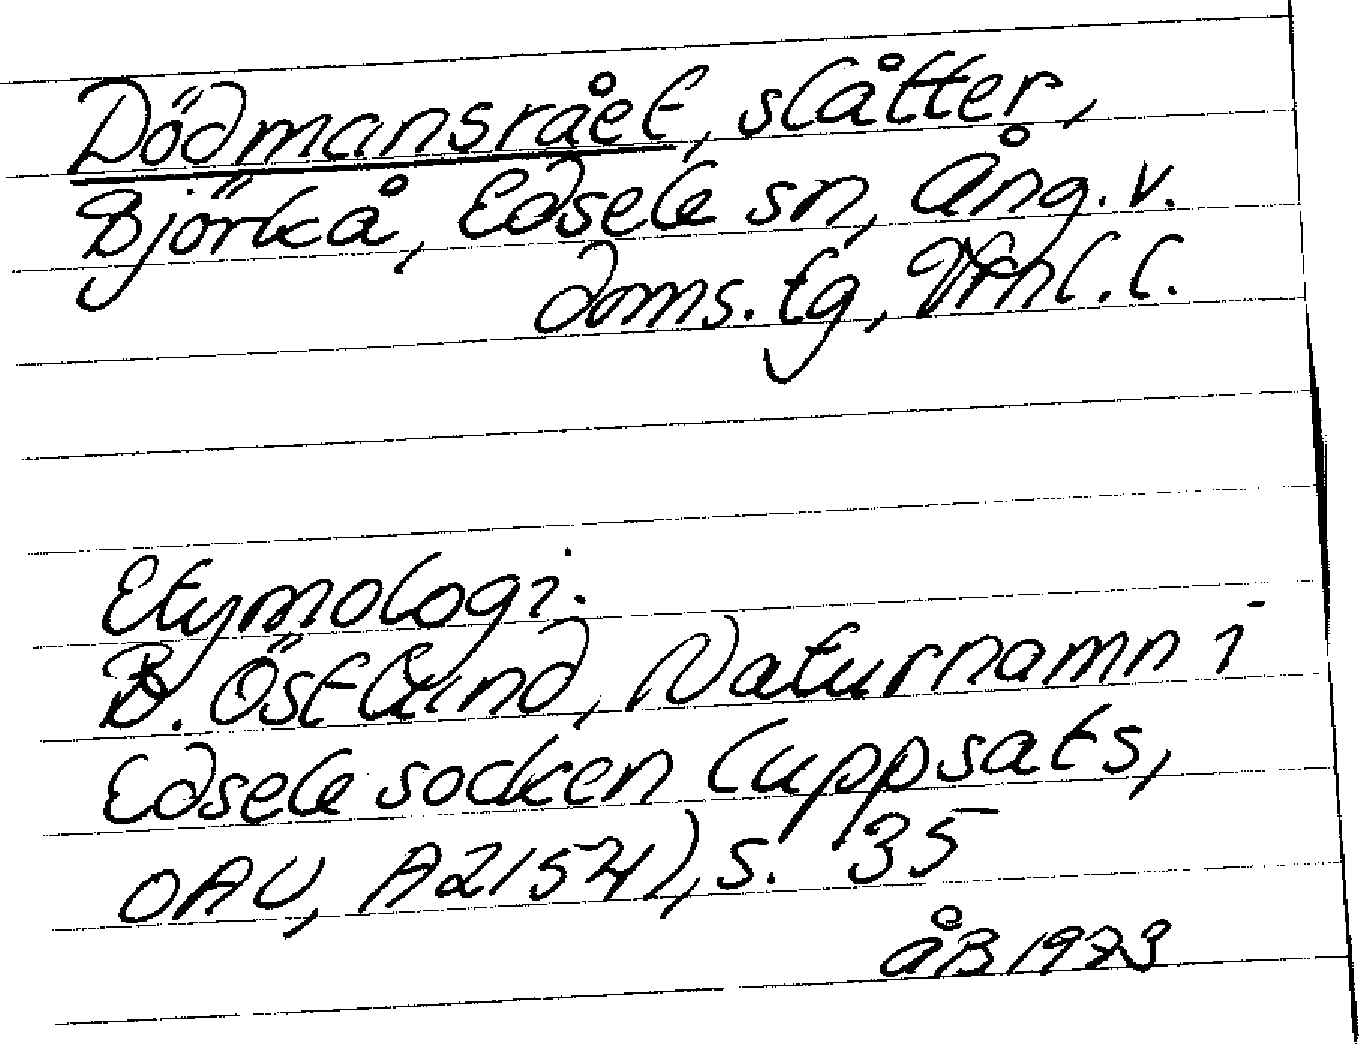 Dödmansrået, slåtter,
Björkå, Edsele sn, Ång. v.
doms. tg, Vrnl. l.
Etymologi.
B. Östlund, Naturnamn i
Edsele socken (uppsats,
OAU, A2154), s. 35
ÅB 1973